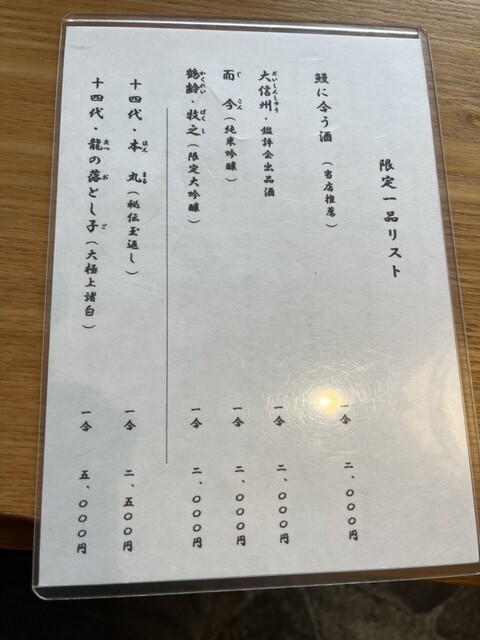 限定一品リスト
鰻に合う酒（当店推薦） 一合 二、〇〇〇円
大信州・鑑評会出品酒 一合 二、〇〇〇円
だいしんしゅう
而今（純米吟醸） 一合 二、〇〇〇円
じこん
鶴齢・牧之（限定大吟醸） 一合 二、〇〇〇円
かくれい ぼくし
十四代・本丸（秘伝玉返し） 一合 二、五〇〇円
ほん まる
十四代・龍の落とし子（大極上諸白） 一合 五、〇〇〇円
たつ お ご